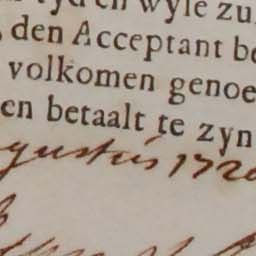 tyd en wyle zu
den Acceptant be
volkomen genoe
en betaalt te zyn
gustus 1720